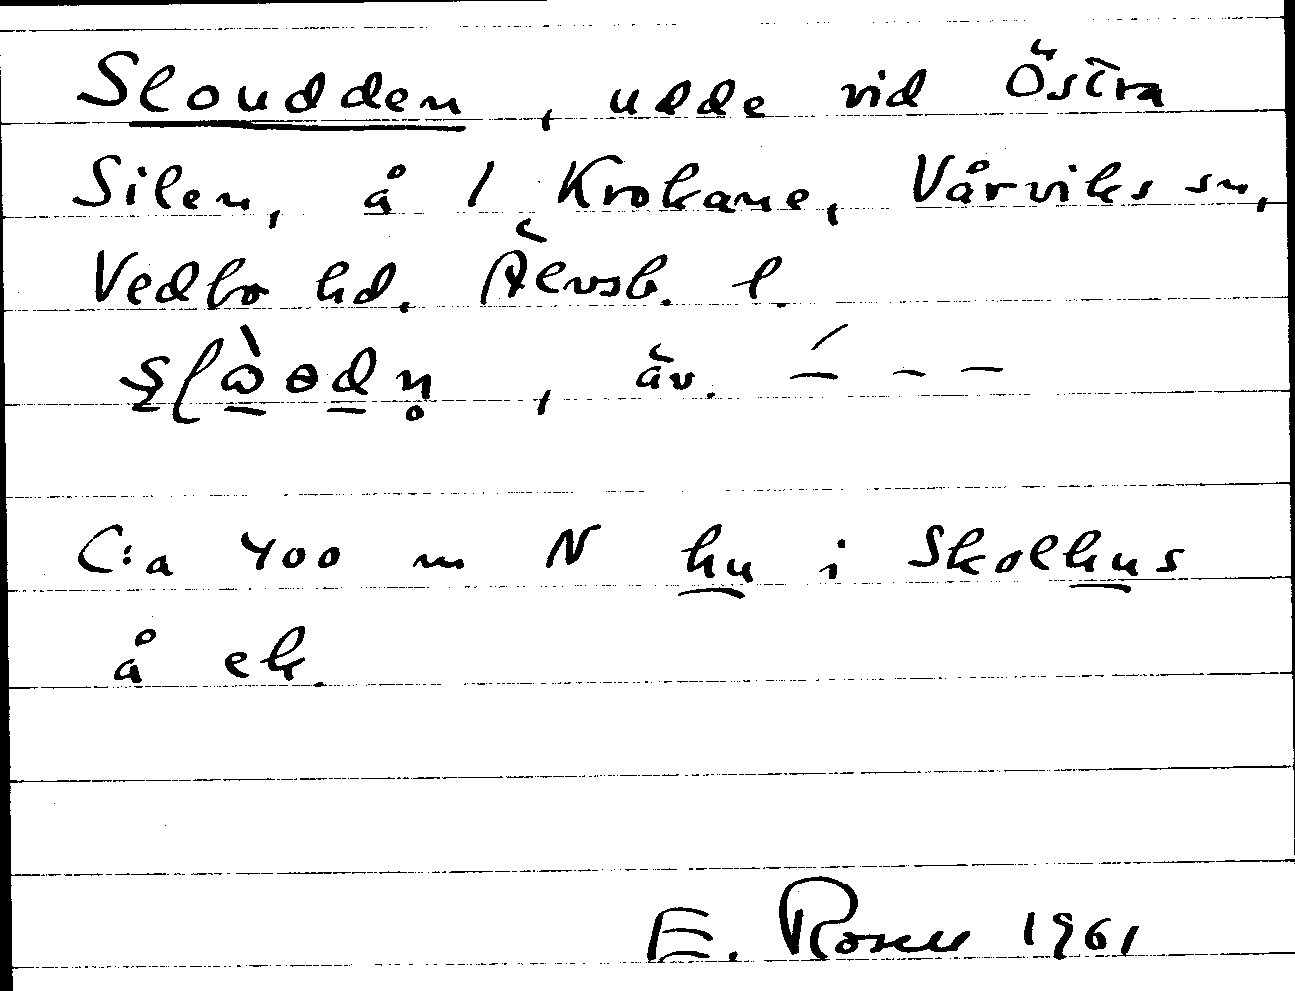 Sloudden, udde vid Östra
Silen, å 1 Krokane, Vårviks sn,
Vedbo hd. Älvsb. l.
, äv. –́ – –
C:a 400 m N hu i Skolhus
å ek.
E. Rosell 1961